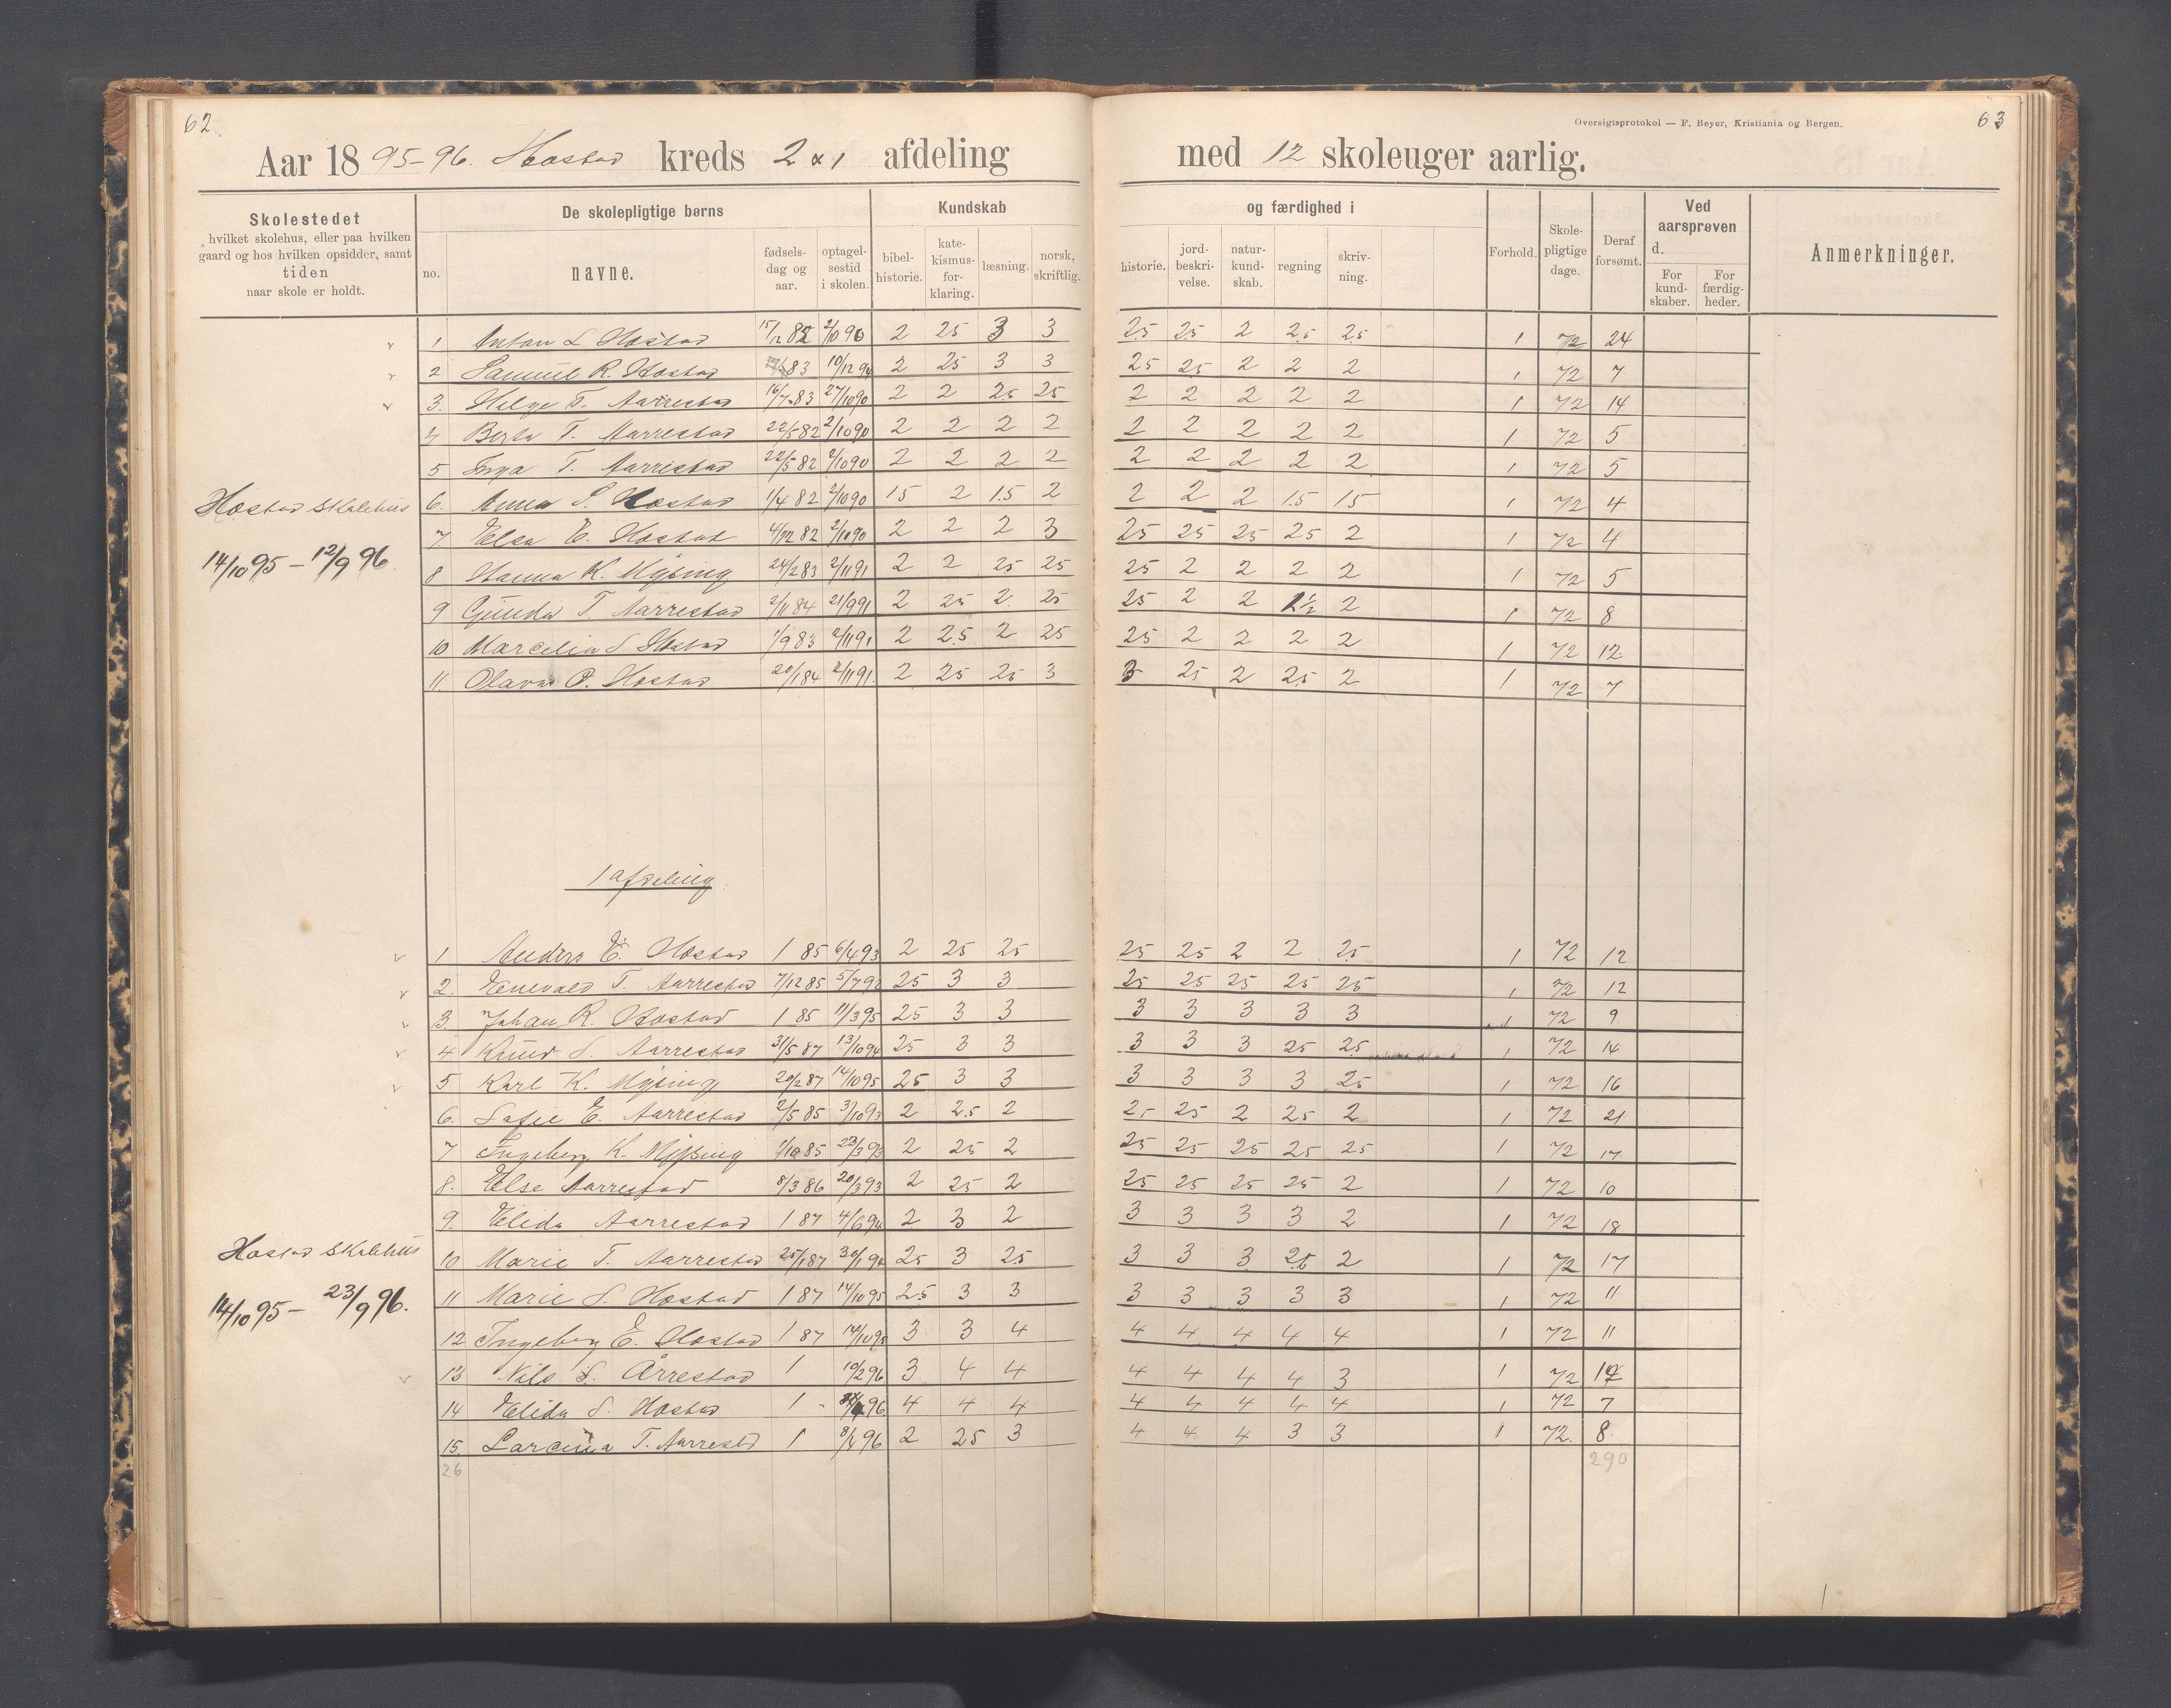 62
63
Oversigtsprotokol — F. Beyer, Kristiania og Bergen.
Aar 1895-96. Hæstad kreds 2 & 1 afdeling med 12 skoleuger aarlig.
Skolestedet
hvilket skolehus, eller paa hvilken
gaard og hos hvilken opsidder, samt
tiden
naar skole er holdt.
De skolepligtige børns
no.
navne.
fødsels-
dag og
aar.
optagel-
sestid
i skolen.
Kundskab og færdighed i
bibel-
historie.
kate-
kismus-
for-
klaring.
læsning.
norsk,
skriftlig.
historie.
jord-
beskri-
velse.
natur-
kund-
skab.
regning
skriv-
ning.
Forhold.
Skole-
pligtige
dage.
Deraf
forsømt.
Ved
aarsprøven
d.
For
kund-
skaber.
For
færdig-
heder.
Anmerkninger.
1 Anton L. Hæstad 15/12 82 2/10 90 2 25 3 3 25 25 2 25 25 1 72 24
2 Samuel R. Hæstad 83 10/12 94 2 25 3 3 25 25 2 2 2 1 72 7
3. Helge T. Aarrestad 16/7 83 27/10 90 2 2 25 25 2 2 2 2 2 1 72 14
4 Berta T. Aarrestad 22/5 82 2/10 90 2 2 2 2 2 2 2 2 2 1 72 5
5 Inga T. Aarrestad 22/5 82 2/10 90 2 2 2 2 2 2 2 2 2 1 72 5
6. Anna S. Hæstad 1/4 82 2/10 90 15 2 1.5 2 2 2 2 1.5 15 1 72 4
Hæstad skolehus
7 Elsa E. Hæstad 4/12 82 2/10 90 2 2 2 3 25 25 25 25 2 1 72 4
14/10 95 - 12/9 96
8 Hanna K. Mysing 24/2 83 2/11 91 2 2 25 25 25 2 2 2 2 1 72 5
9 Gunda T. Aarrestad 2/11 84 21/9 91 2 25 2 25 25 2 2 2 1 72 8
10 Marcelia S. Hæstad 1/9 83 2/11 91 2 2.5 2 25 25 2 2 2 2 1 72 12
11. Olava P. Hæstad 20/1 84 2/11 91. 2 25 25 3 3 25 2 25 2 1 72 7
1 afdeling
1 Anders E. Hæstad 1 85 6/4 93 2 25 25 25 25 2 2 25 1 72 12
2. Enevald T. Aarrestad 7/12 85 5/7 25 3 3 25 25 25 25 25 1 72 12
3. Johan R. Hæstad 1 85 11/3 95 25 3 3 3 3 3 3 3 1 72 9
4 Knud S. Aarrestad 31/5 87 13/10 94 25 3 3 3 3 3 25 25 1 72 14
5 Karl K. Mysing 20/2 87 14/10 95 25 3 3 3 3 3 3 25 1 72 16
6. Sofie E. Aarrestad 2/5 85 3/10 93 2 25 2 25 25 2 25 2 1 72 21
7 Ingeborg K. Mysing 1/10 85 23/3 93 2 25 2 25 25 25 25 25 1 72 17
8. Else Aarrestad 8/3 86 20/3 93 2 25 2 25 25 25 25 2 1 72 10
9. Elida Aarrestad 1 87 4/6 94 2 3 2 3 3 3 3 2 1 72 18
Hæstad skolehus
10 Marie T. Aarrestad 25/1 87 25 3 25 3 3 3 25 2 1 72 17
14/10 95 - 23/9 96.
11 Marie S. Hæstad 1 87 14/10 95 25 3 3 3 3 3 3 3 1 72 11
12 Ingeborg E. Hæstad 1 87 14/10 95 3 3 4 4 4 4 4 4 1 72 11
13 Nils S. Årrestad 1 10/2 96 3 4 4 4 4 4 4 3 1 72
14 Elida S. Hæstad 1 - 96 4 4 4 4 4 4 4 4 1 72 7
15. Larcina T. Aarrestd 1 8/4 96 2 25 3 4 4 4 3 3 1 72. 8
26 290